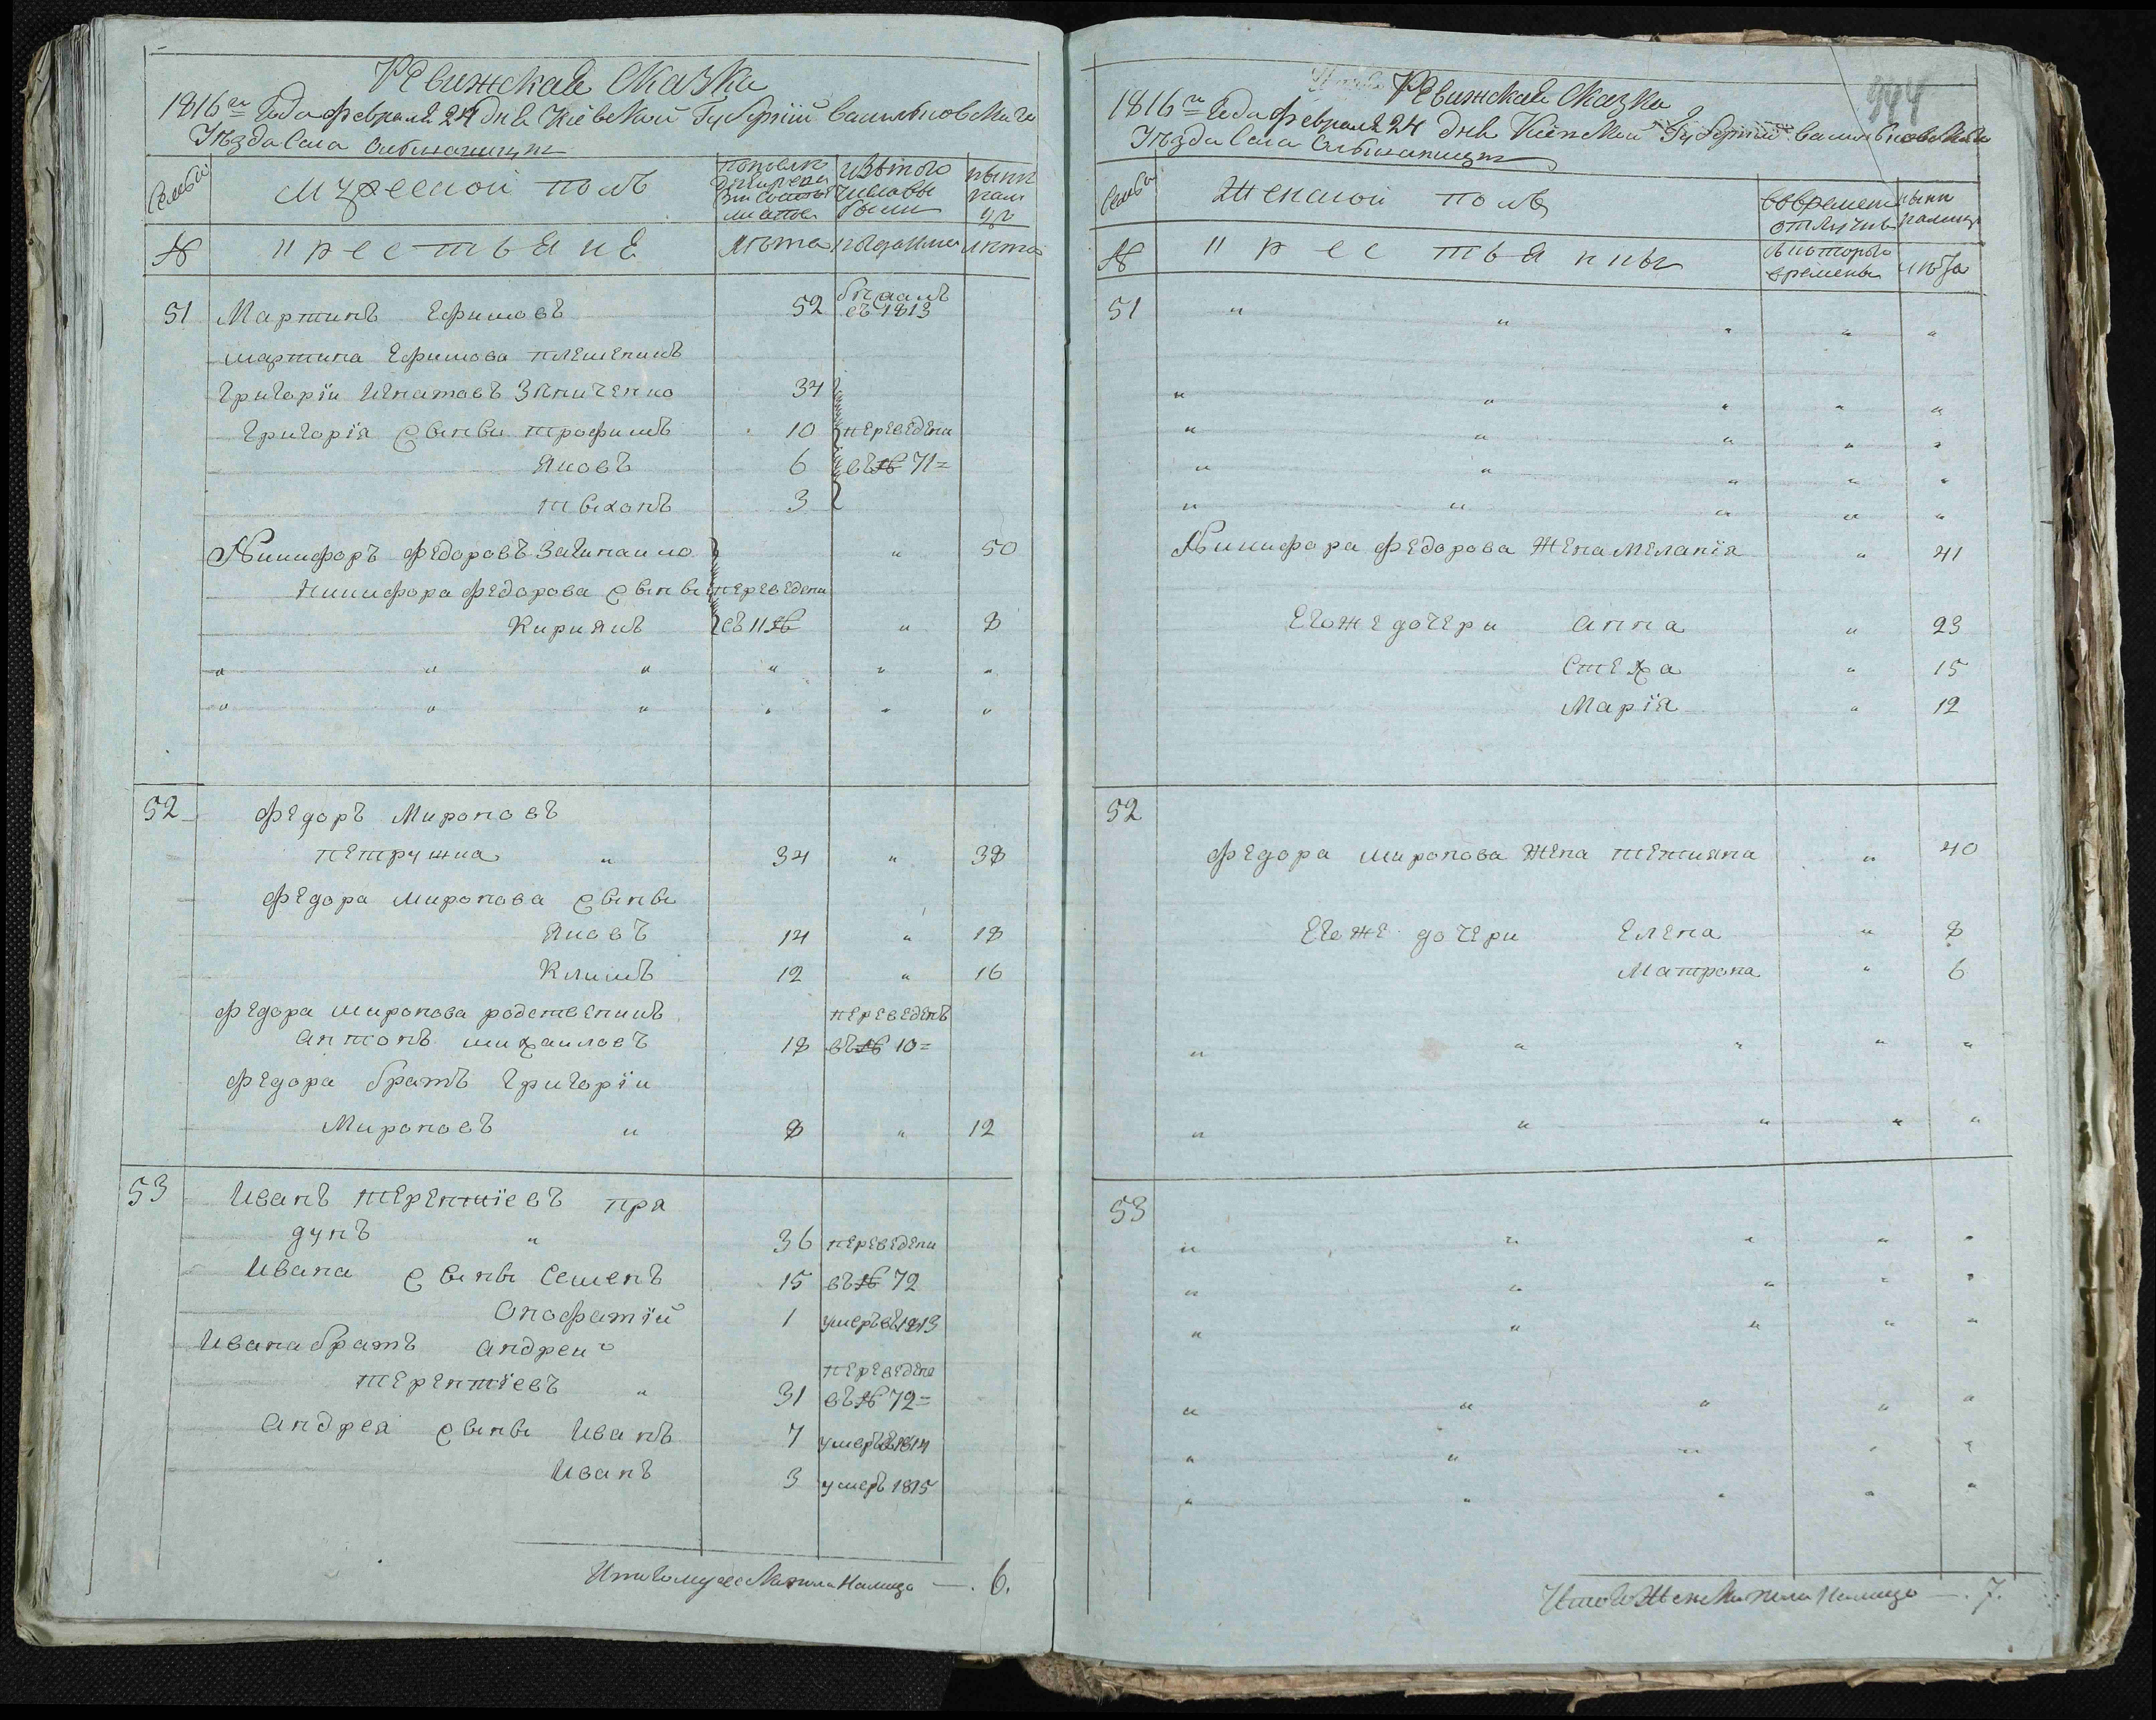 Ревижская Сказка
1816го Года февраля 24 дня Кіевской Губерніи васильковскаго
Уѣзда Села
Семьи
мужеской полъ
по последней ревизіи состояло
изътого числа выбыли
нынѣ на лицо
№
крестьяне
лѣта
когда имен
лѣта
51
Мартинъ Ефимовъ
52
бѣжалъ
въ 1813
мартина Ефимова племеникъ
Григорій Игнатовъ Зѣнченко
34
Григорія сыны трофимъ
10
переведени
Яковъ
6
въ № 71=
тихонъ
3
Никифоръ федоровъ Загинайло
"
50
Никифора федорова сыны
переведени
Кириякъ
съ 11 №
"
8
" " " " " "
" " " " " "
52
федоръ Мироновъ
петрушка "
34
"
38
федора миронова сыны
Яковъ
14
"
18
Климъ
12
"
16
федора миронова родственикъ
переведенъ
антонъ михаиловъ
18
въ № 10=
федора братъ Григорій
Мироновъ "
8
"
12
53
Иванъ терентіевъ пря
дунъ "
36
переведени
Ивана сыны Семенъ
15
въ № 72
Онофатій
1
умеръ въ 1813
Ивана братъ андрей
переведено
терентіевъ "
31
въ № 72=
андрея сыны Иванъ
7
умеръ въ 1814
Иванъ
3
умеръ 1815
Итого мужеска пола Налицо — . 6.
944
Ревижская Сказка
1816го Года февраля 24 дня Кіевской Губерніи васильковскаго
Уѣзда Села
Семьи
Женской полъ
вовременной отлучки
нынѣ налицо
№
крестьянки
скотораго времены
лѣта
51
" " " " "
" " " " "
" " " " "
" " " " "
" " " " "
Никифора федорова Жена Меланія
"
41
Егоже дочери анна
"
23
Стеха
"
15
Марія
"
12
52
федора миронова Жена тетияна
"
40
Егоже дочери Елена
"
8
Матрона
"
6
" " " " "
" " " " "
53
" " " " "
" " " " "
" " " " "
" " " " "
" " " " "
" " " " "
Итого Женска пола Налицо — . 7.